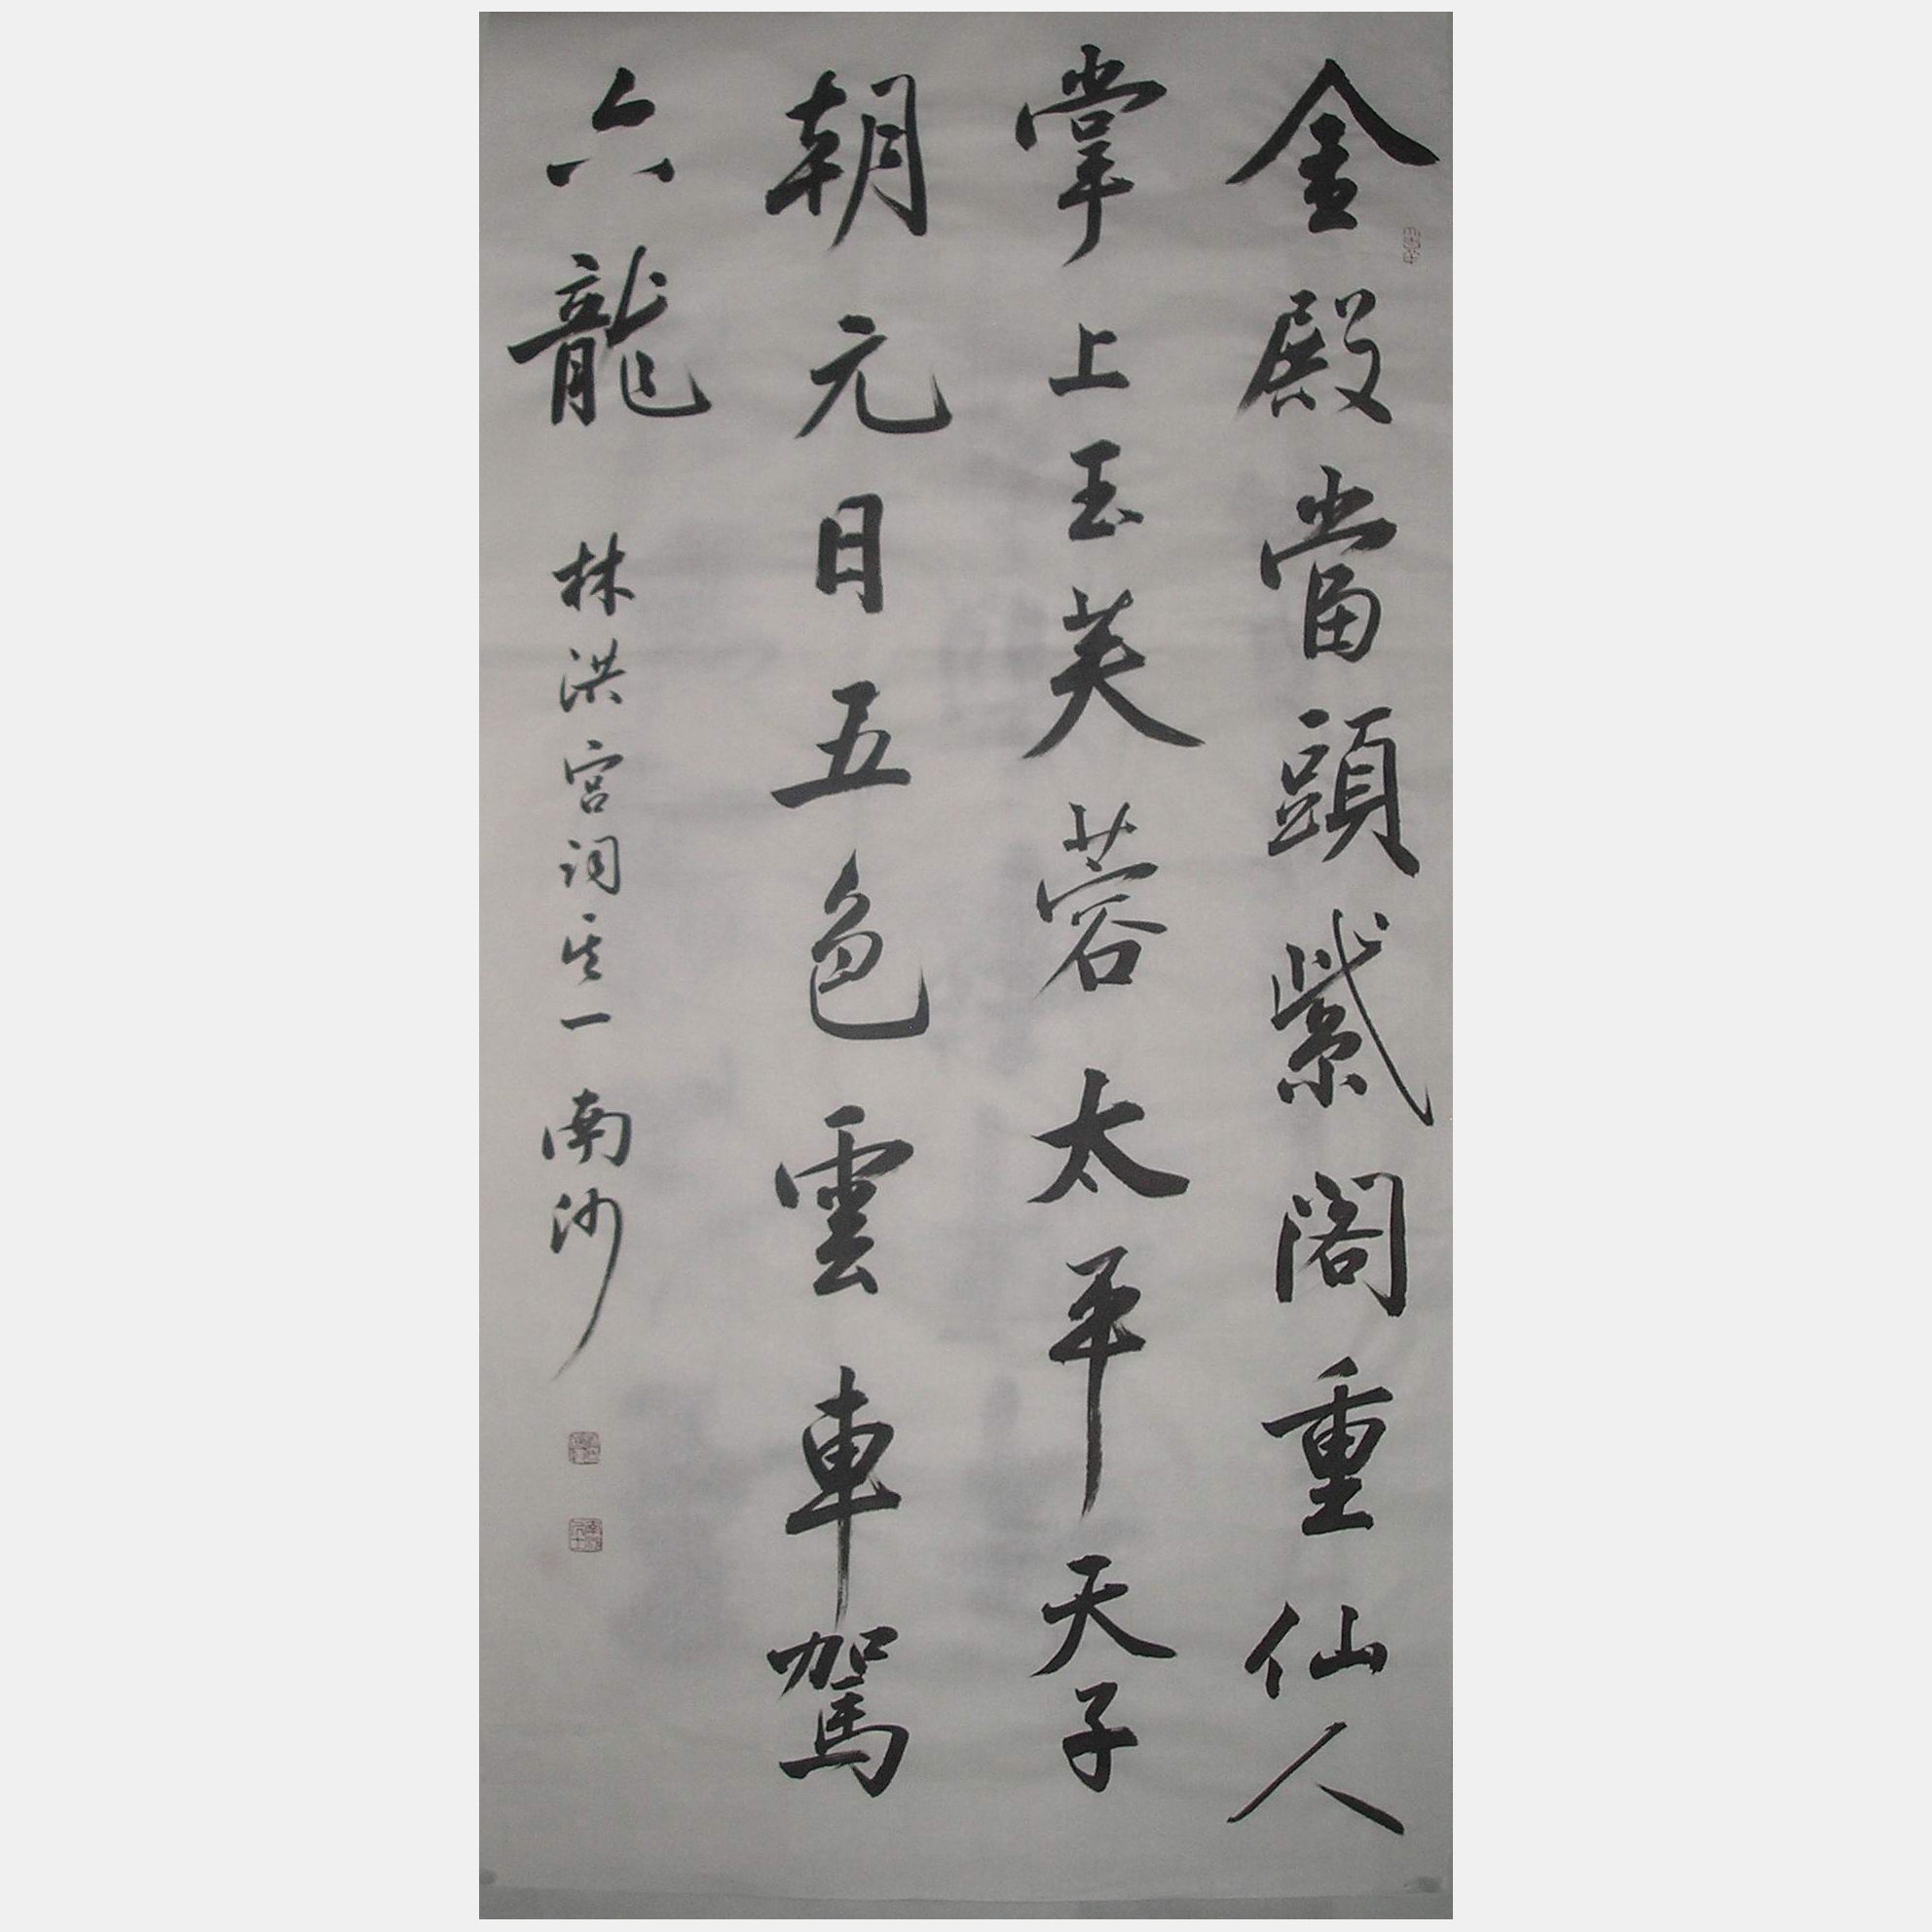 金殿當頭紫閣重仙人
掌上玉芙蓉太平天子
朝元日五色雲車駕
六龍 林洪宫词其一 南沙